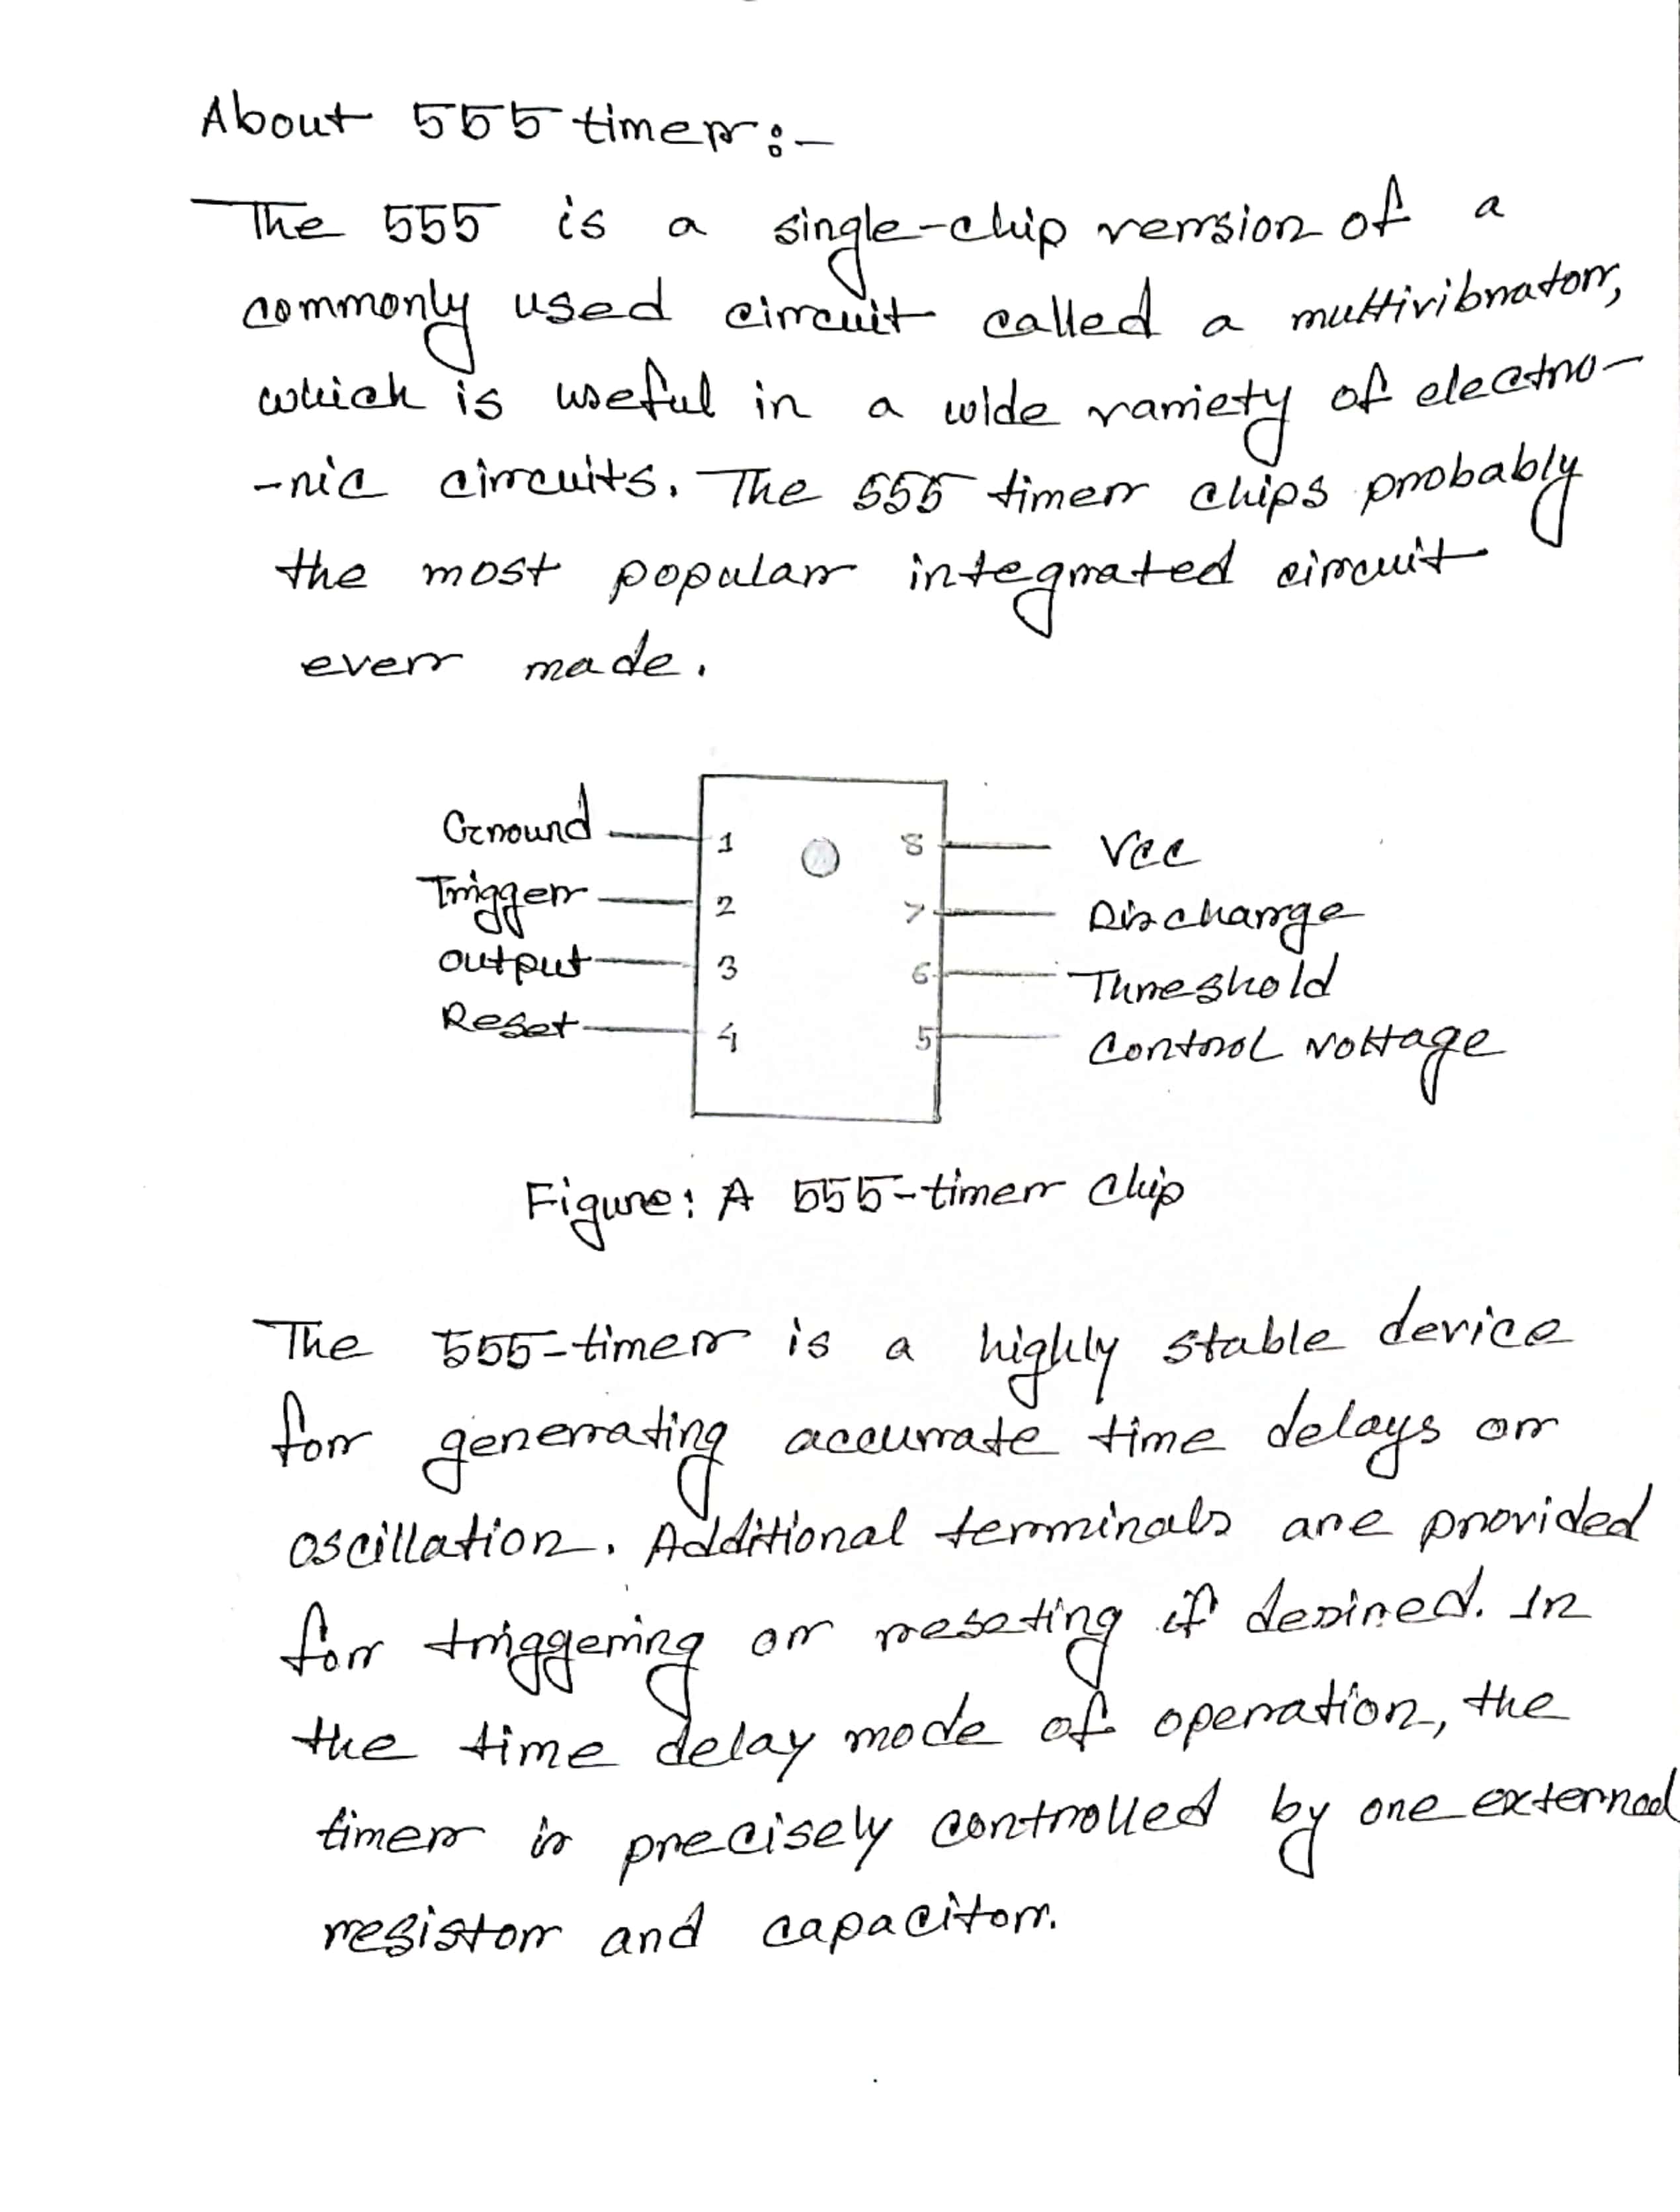 About 555 timer:-
The 555 is a single-chip version of a
commonly used circuit called a multivibrator,
which is useful in a wide variety of electro-
-nic circuits. The 555 timer chips probably
the most popular integrated circuit
ever made.
Ground 1 8 Vcc
Trigger 2 7 Discharge
output 3 6 Threshold
Reset 4 5 Control voltage
Figure: A 555-timer chip
The 555-timer is a highly stable device
for generating accurate time delays or
oscillation. Additional terminals are provided
for triggering or reseting if desired. In
the time delay mode of operation, the
timer is precisely controlled by one external
resistor and capacitor.